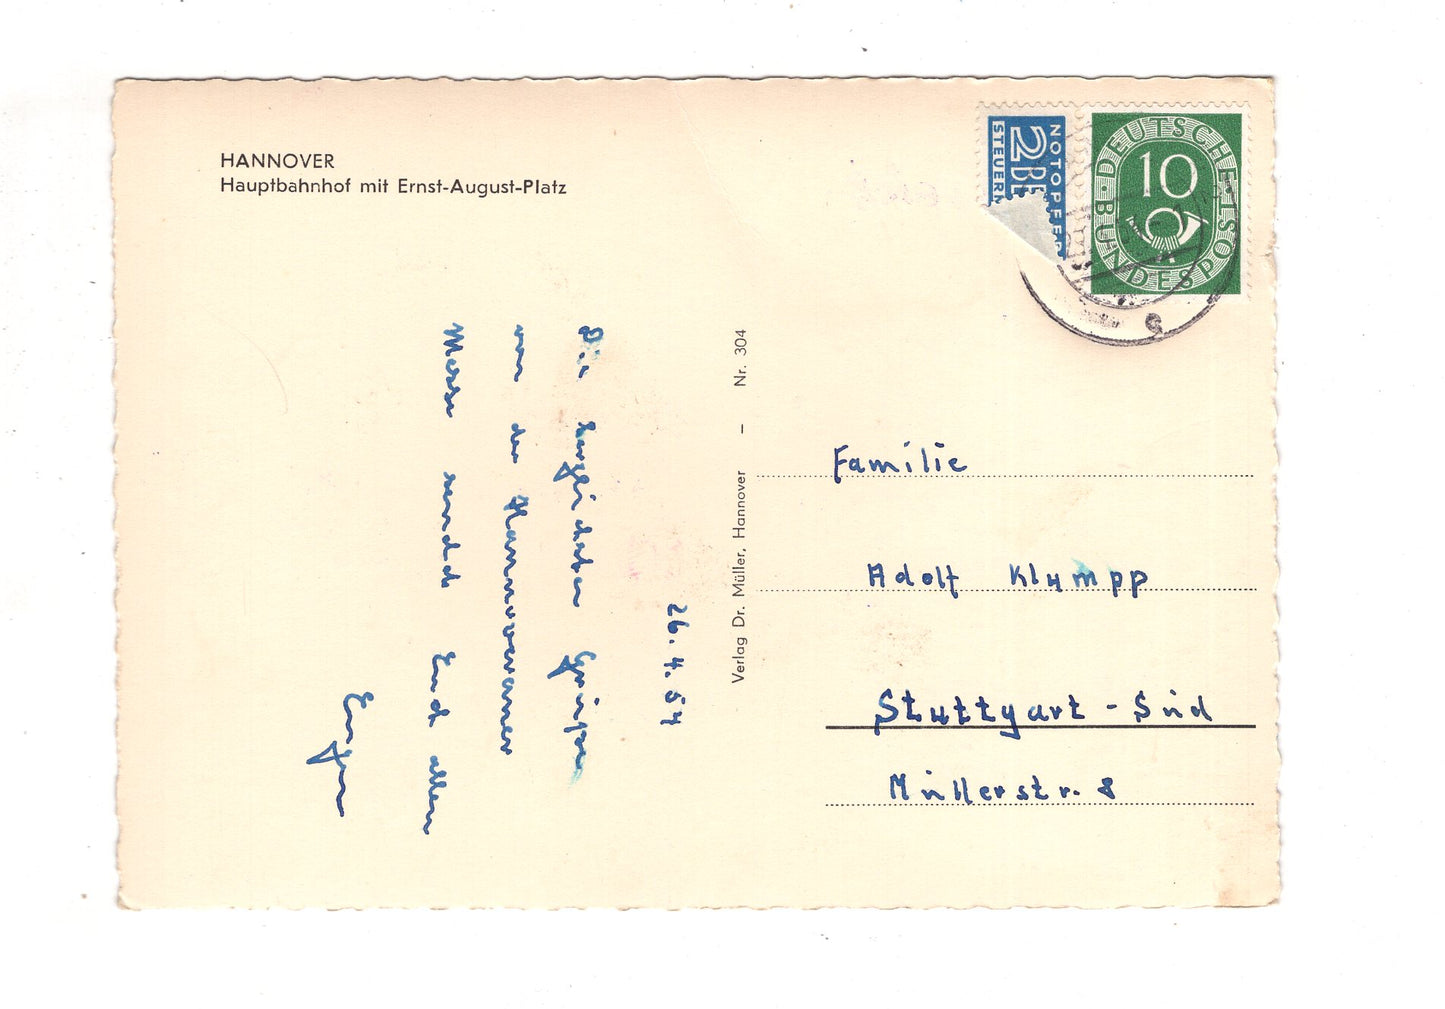 HANNOVER
Hauptbahnhof mit Ernst-August-Platz
NOTOPFER
2 BE
STEUERM
DEUTSCHE BUNDESPOST
10
26.4.54
Die herzlichsten Grüße
von der Hannoveraner
Messe sendet Euch allen
Eugen
Verlag Dr. Müller, Hannover – Nr. 304
Familie
Adolf Klumpp
Stuttgart-Süd
Müllerstr. 8